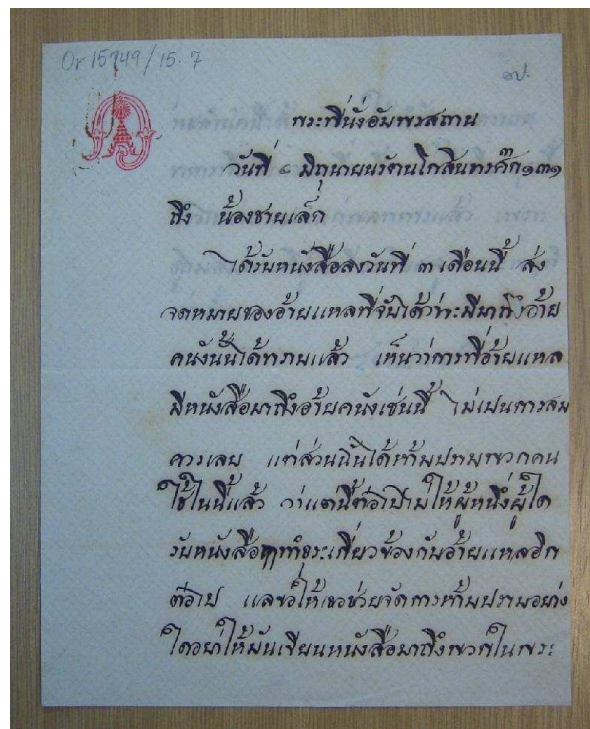 Or 15949/15.7
๑ป.
พระที่นั่งอัมพรสถาน
วันที่ ๘ มิถุนายนรัตนโกสินทรศ๊ก๑๓๑
ถึง น้องชายเล็ก
ได้รับหนังสือลงวันที่ ๓ เดือนนี้ ส่ง
จดหมายของอ้ายแหลที่จับได้ว่า มีมาถึงอ้าย
คนังนั้นได้ทราบแล้ว เห็นว่าการที่อ้ายแหล
มีหนังสือมาถึงอ้ายคนังเช่นนี้ ไม่เปนการสม
ควรเลย แต่ส่วนนี้ได้ห้ามปรามพวกคน
ใช้ในนี้แล้ว ว่าแต่นี้ต่อไปไม่ให้ผู้หนึ่งผู้ใด
รับหนังสือ ธุระเกี่ยวข้องกับอ้ายแหลอีก
ต่อไป แลขอให้เธอช่วยจัดการห้ามปรามอย่าง
ใดอย่าให้มันเขียนหนังสือมาถึงพวกในพระ